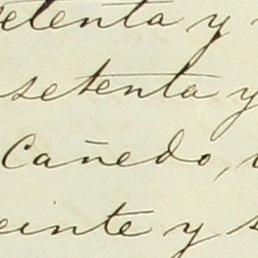 setenta y
setenta y
Cañedo,
einte y